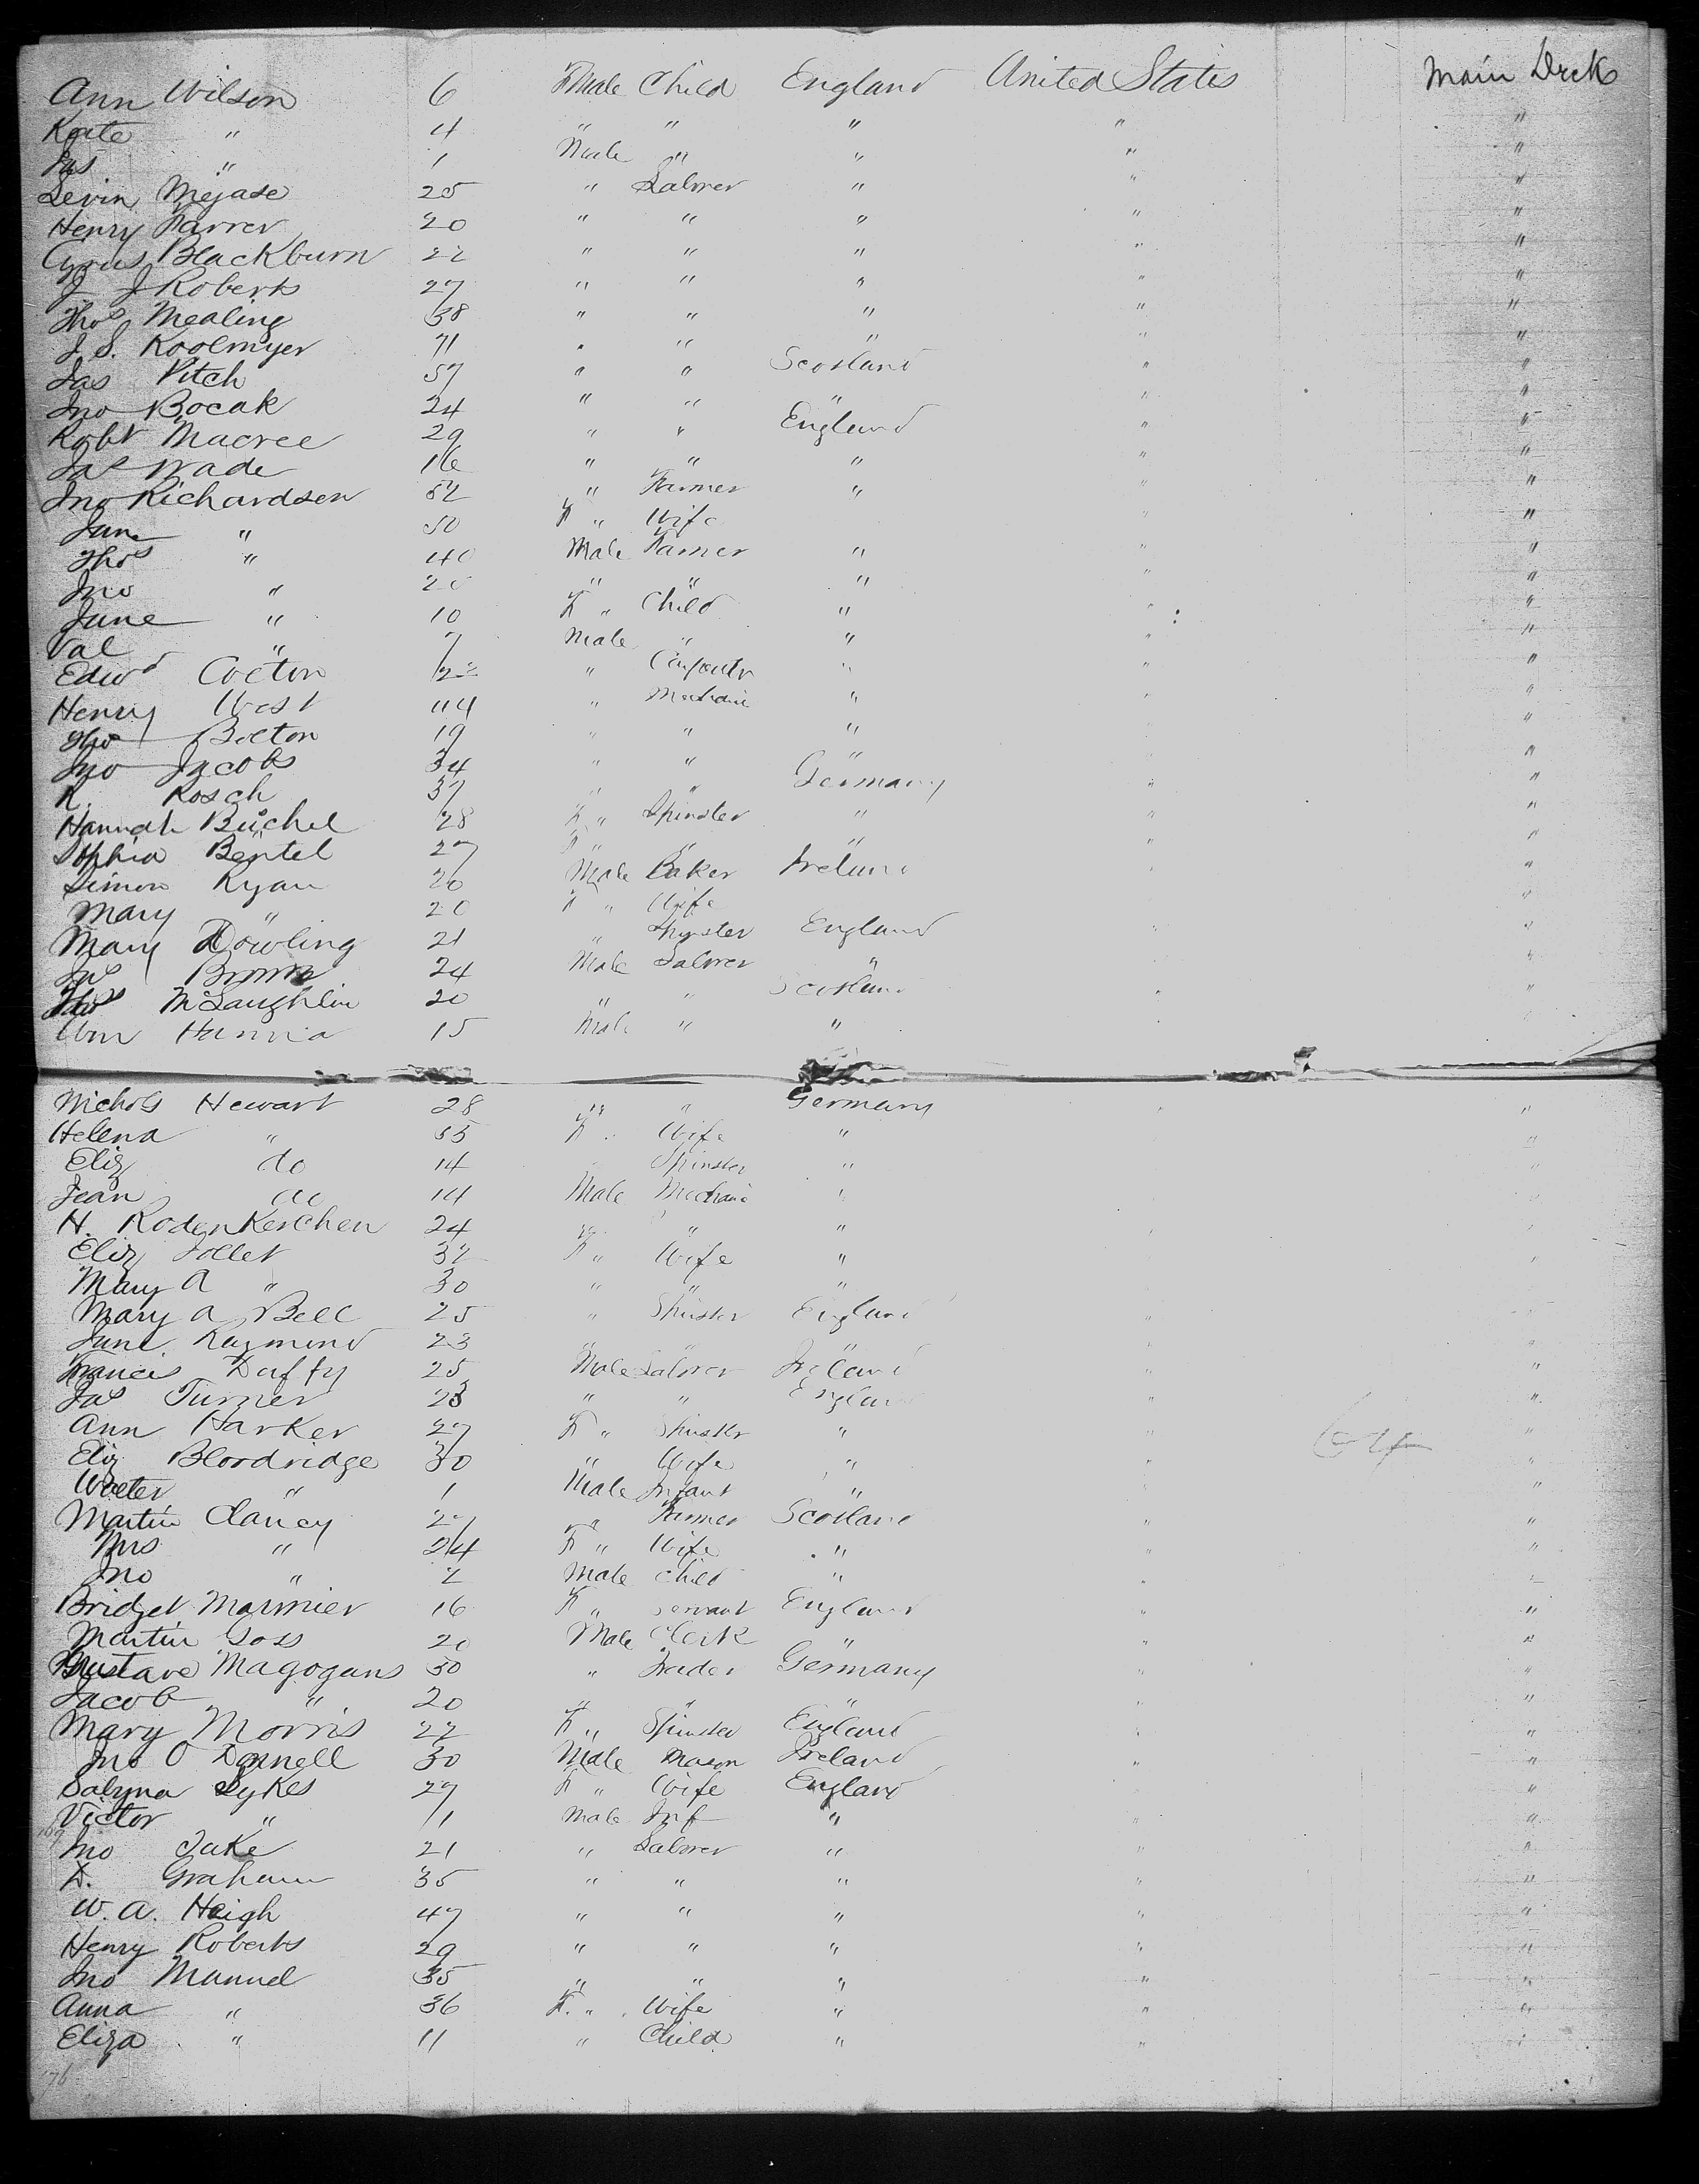 Ann Wilson 6 Fmale Child England United States Main Deck
Kate " 4 " " " " "
Jas " 1 Male " " " "
Levin Mejase 25 " Labrer " " "
Henry Farrer 20 " " " " "
Cyrus Blackburn 22 " " " " "
J J Roberts 27 " " " " "
Thos Mealing 38 " " " " "
J. S. Koolmyer 71 " " " " "
Jas Pitch 57 " " Scotland " "
Jno Bocak 24 " " " " "
Robt Macree 29 " " England " "
Jas Wade 16 " " " " "
Jno Richardson 52 " Farmer " " "
Jane " 50 F " Wife " "
Thos " 40 Male Farmer " " "
Jno " 20 " " " " "
June " 10 F " Child " " "
Val " 7 Male " " " "
Edwd Cocton 22 " Carpentr " " "
Henry West 44 " Mechanic " " "
Tho Bolton 19 " " " "
Jno Jacobs 34 " " " "
R. Rosch 37 " " Germany " "
Hannah Buchel 28 F " Spinster " " "
Sophia Bentel 27 F " " " " "
Simon Ryan 26 Male Baker Ireland "
Mary " 20 F " Wife "
Mary Dowling 21 " Spinster England " "
Jas Brown 24 Male Labrer " "
Thos McLaughlin 20 " " Scotland " "
Wm Hannia 15 Male " "
Nichols Hewart 28 " " Germany " "
Helena " 35 F " Wife " "
Eliz do 14 Spinster " "
Jean do 14 Male Mechanic "
H. RodenKerchen 24 " " "
Eliz Sollet 32 F " Wife "
Mary A " 30 " " "
Mary A Bell 25 " Spinster England "
June Raymond 23 " " " "
Francis Duffy 25 Male Labrer Ireland " "
Jas Turner 23 " " England " "
Ann Harker 27 F " Spinster " " "
Eliz Blordridge 30 " Wife " " "
Walter " 1 Male Infant " "
Martin Clancy 27 " Farmer Scotland " "
Mrs " 24 F " Wife " " "
Jno " 2 Male Child " " "
Bridget Marmier 16 F " Servant England " "
Martin Goss 20 Male Clerk " " "
Gustave Magogans 30 " Trader Germany " "
Jacob " 20 " " " "
Mary Morris 22 F " Spinster England " "
Jno O Donnell 30 Male Mason Ireland " "
Salyna Sykes 27 F " Wife England "
Victor " 11 Male Inf " " "
Jno Take 21 " Labrer " " "
D. Graham 35 " " " " "
W. A. Heigh 47 " " " " "
Henry Roberts 29 " " " " "
Jno Manuel 35 " " " " "
Anna " 36 F. " Wife " " "
Eliza " 11 " Child " " "
76